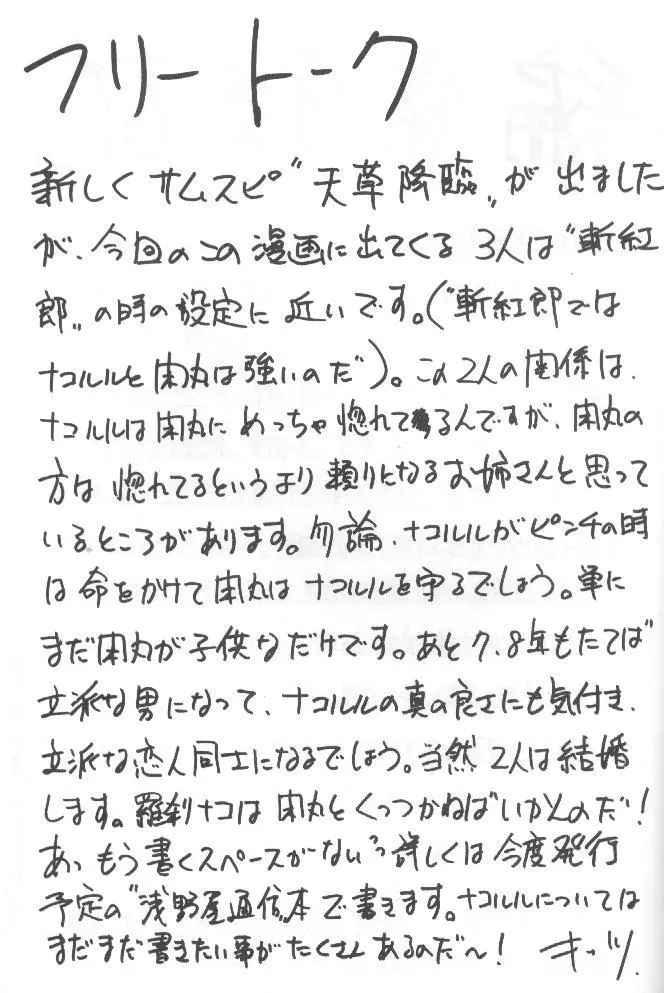 フリートーク
新しくサムスピ〝天草降臨〟が出ました
が、今回のこの漫画に出てくる3人は〝斬紅
郎〟の時の設定に近いです。(〝斬紅郎では
ナコルルと閑丸は強いのだ)。この2人の関係は、
ナコルルは閑丸にめっちゃ惚れてるんですが、閑丸の
方は惚れてるというより頼りになるお姉さんと思って
いるところがあります。勿論、ナコルルがピンチの時
は命をかけて閑丸はナコルルを守るでしょう。単に
まだ閑丸が子供なだけです。あと7、8年もたてば
立派な男になって、ナコルルの真の良さにも気付き、
立派な恋人同士になるでしょう。当然2人は結婚
します。羅刹ナコは閑丸とくっつかねばいかんのだ!
あっもう書くスペースがない〝詳しくは今度発行
予定の〝浅野屋通信〟本で書きます。ナコルルについては
まだまだ書きたい事がたくさんあるのだ〜!